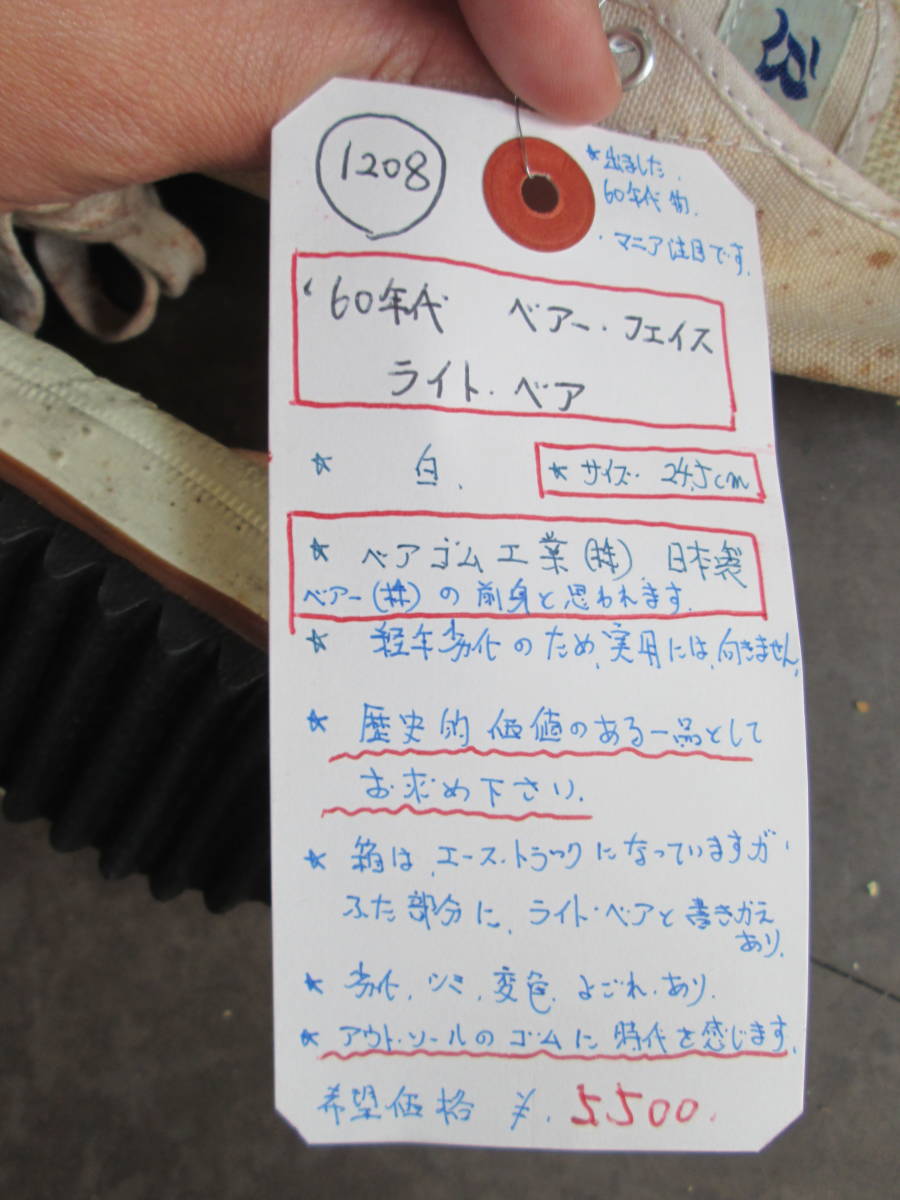 1208
★出ました.
60年代物.
・マニア注目です.
'60年代 ベアー・フェイス
ライト・ベア
★ 白.
★サイズ. 24.5cm
★ ベアゴム工業(株) 日本製
ベアー(株)の前身と思われます.
★ 経年劣化のため、実用には、向きません.
★ 歴史的価値のある一品として
お求め下さい.
★ 箱は、エース・トラックになっていますが・
ふた部分に、ライト・ベアと書きかえ
あり.
★ 劣化、シミ、変色、よごれ、あり.
★ アウト・ソールのゴムに時代を感じます.
希望価格 ¥. 5500.